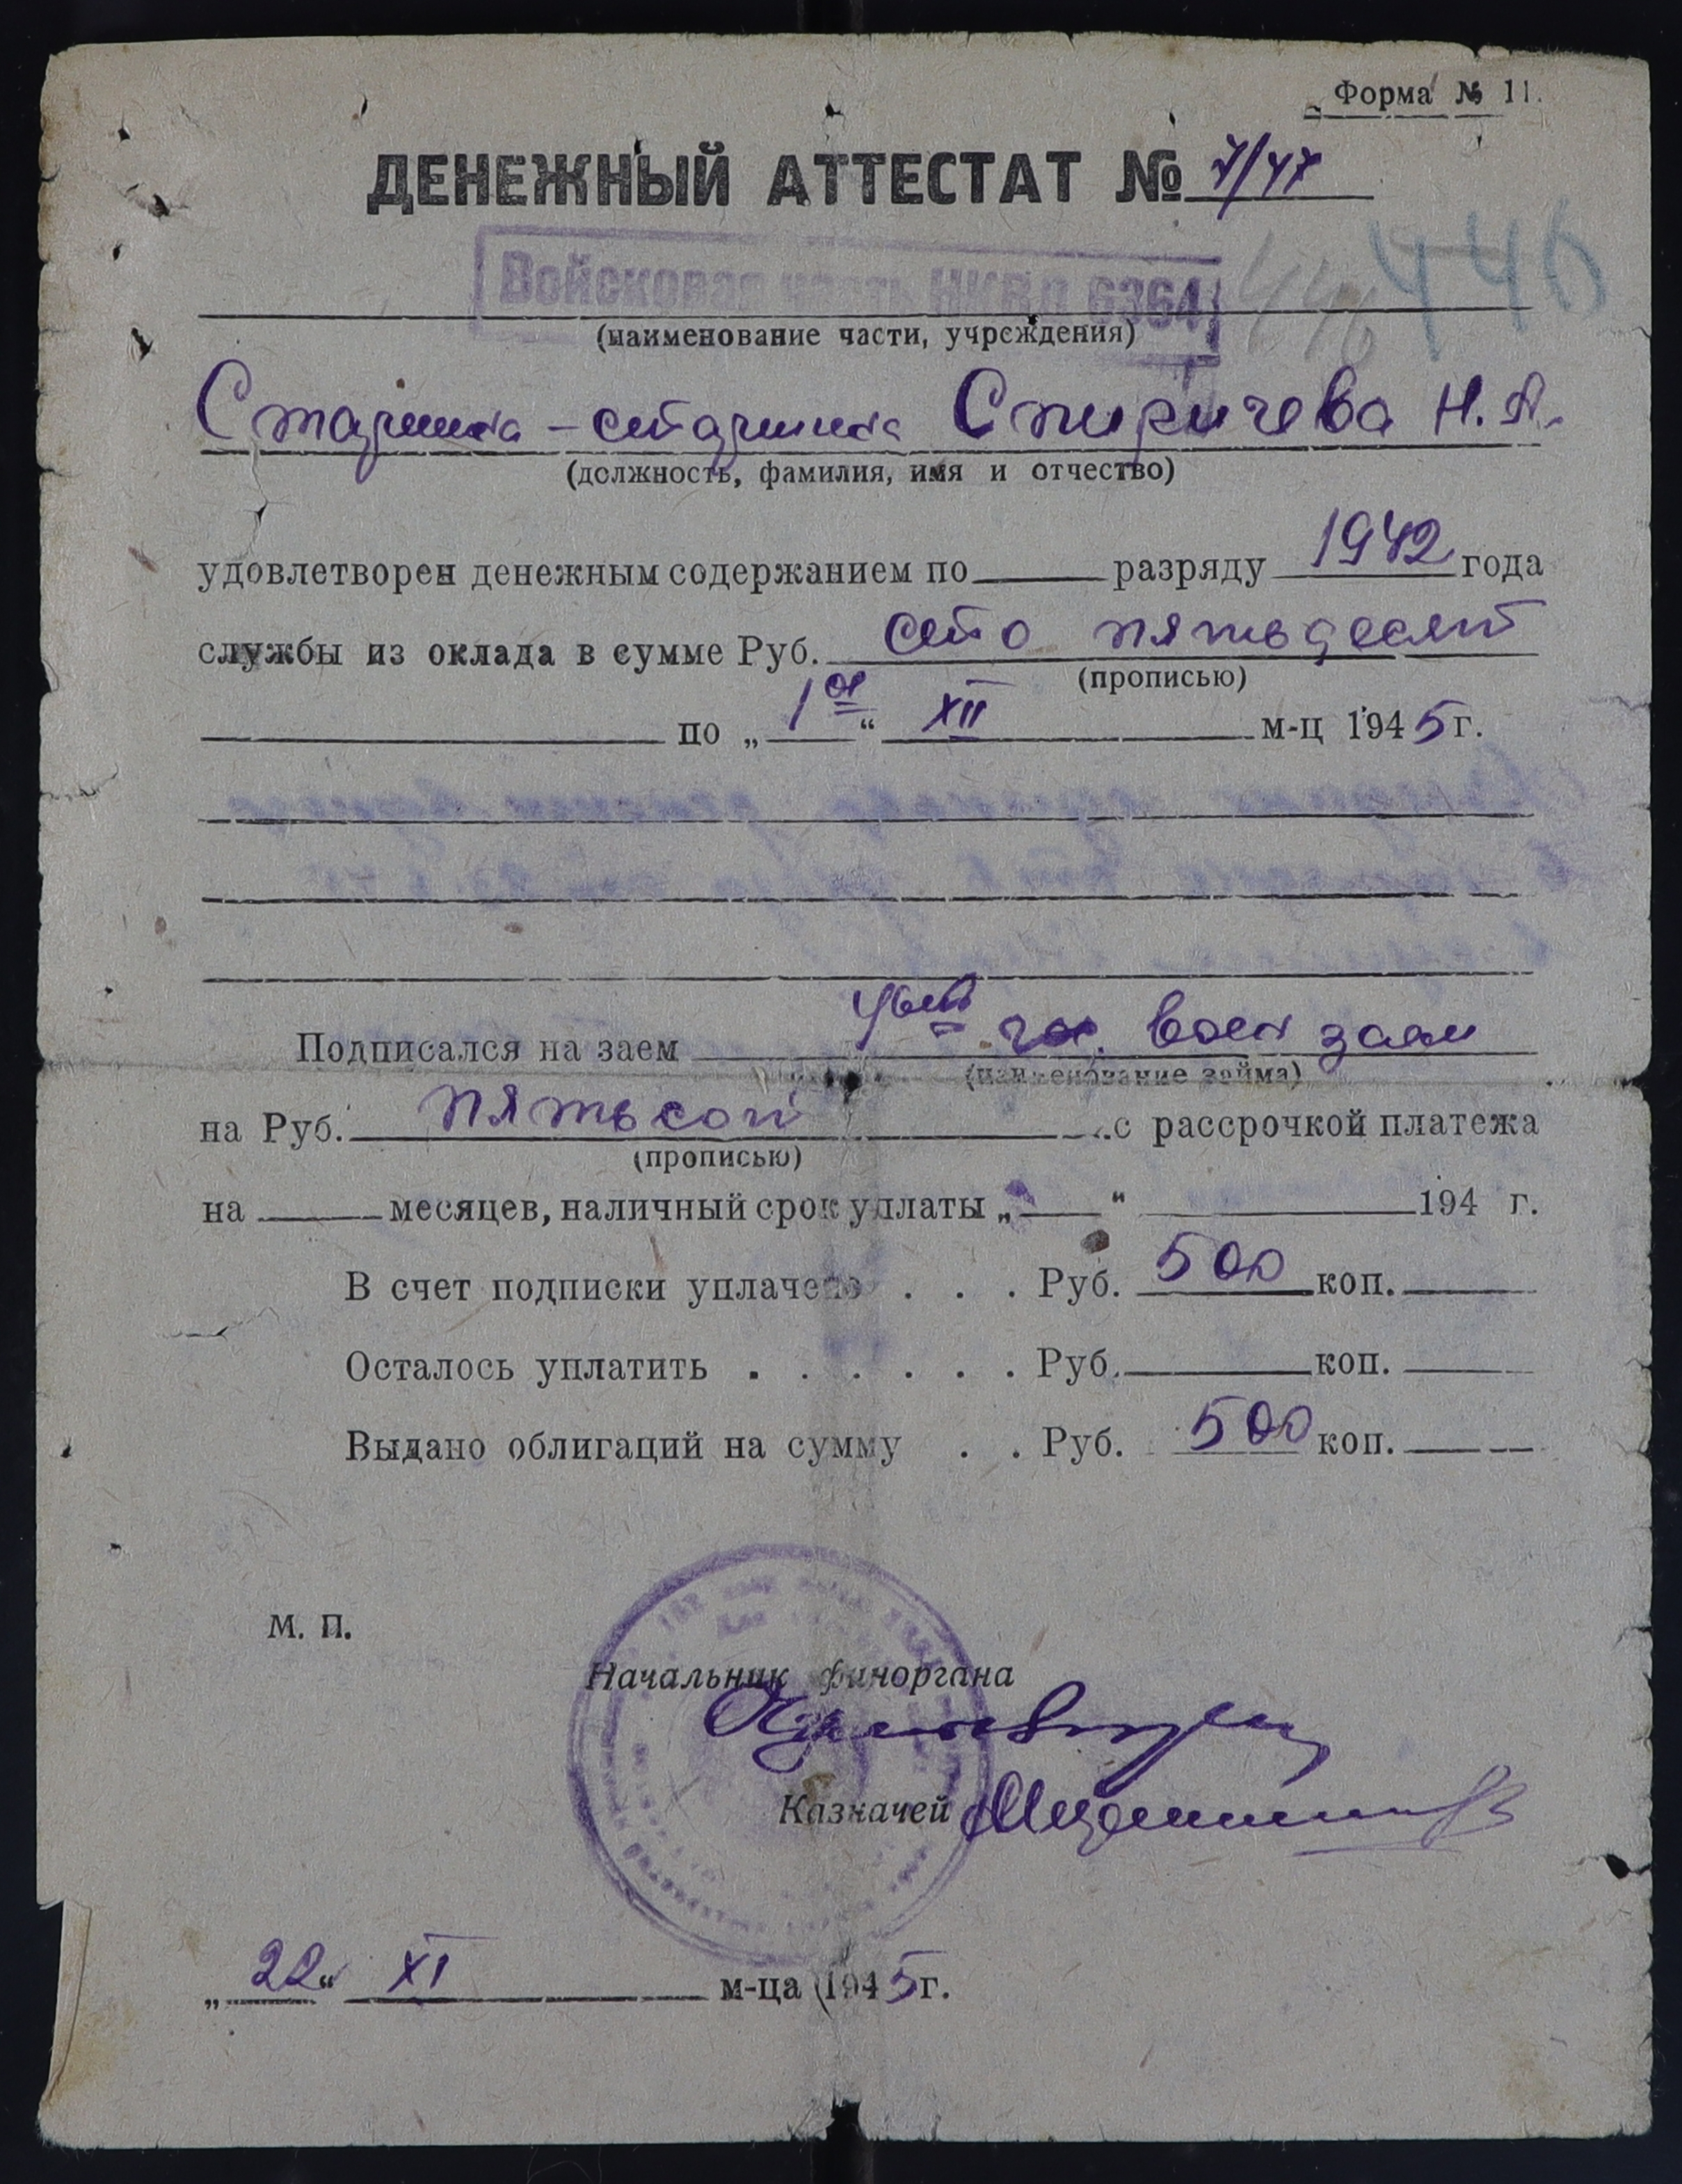 Форма № 11.
ДЕНЕЖНЫЙ АТТЕСТАТ № 7/47
Войсковая часть НКВД 6364
446 446
(наименование части, учреждения)
Старшина - старшина Спиричева Н. А.
(должность, фамилия, имя и отчество)
удовлетворен денежным содержанием по разряду 1942 года
службы из оклада в сумме Руб. сто пятьдесят
(прописью)
по „1ое“ XII м-ц 1945 г.
Подписался на заем 4ый гос. воен заем
(наименование займа)
на Руб. пятьсот с рассрочкой платежа
(прописью)
на месяцев, наличный срок уплаты „ “ 194 г.
В счет подписки уплачено . . . Руб. 500 коп.
Осталось уплатить . . . . . . Руб. коп.
Выдано облигаций на сумму . . Руб. 500 коп.
М. П.
Начальник финоргана
Казначей
„22“ XI м-ца 1945 г.